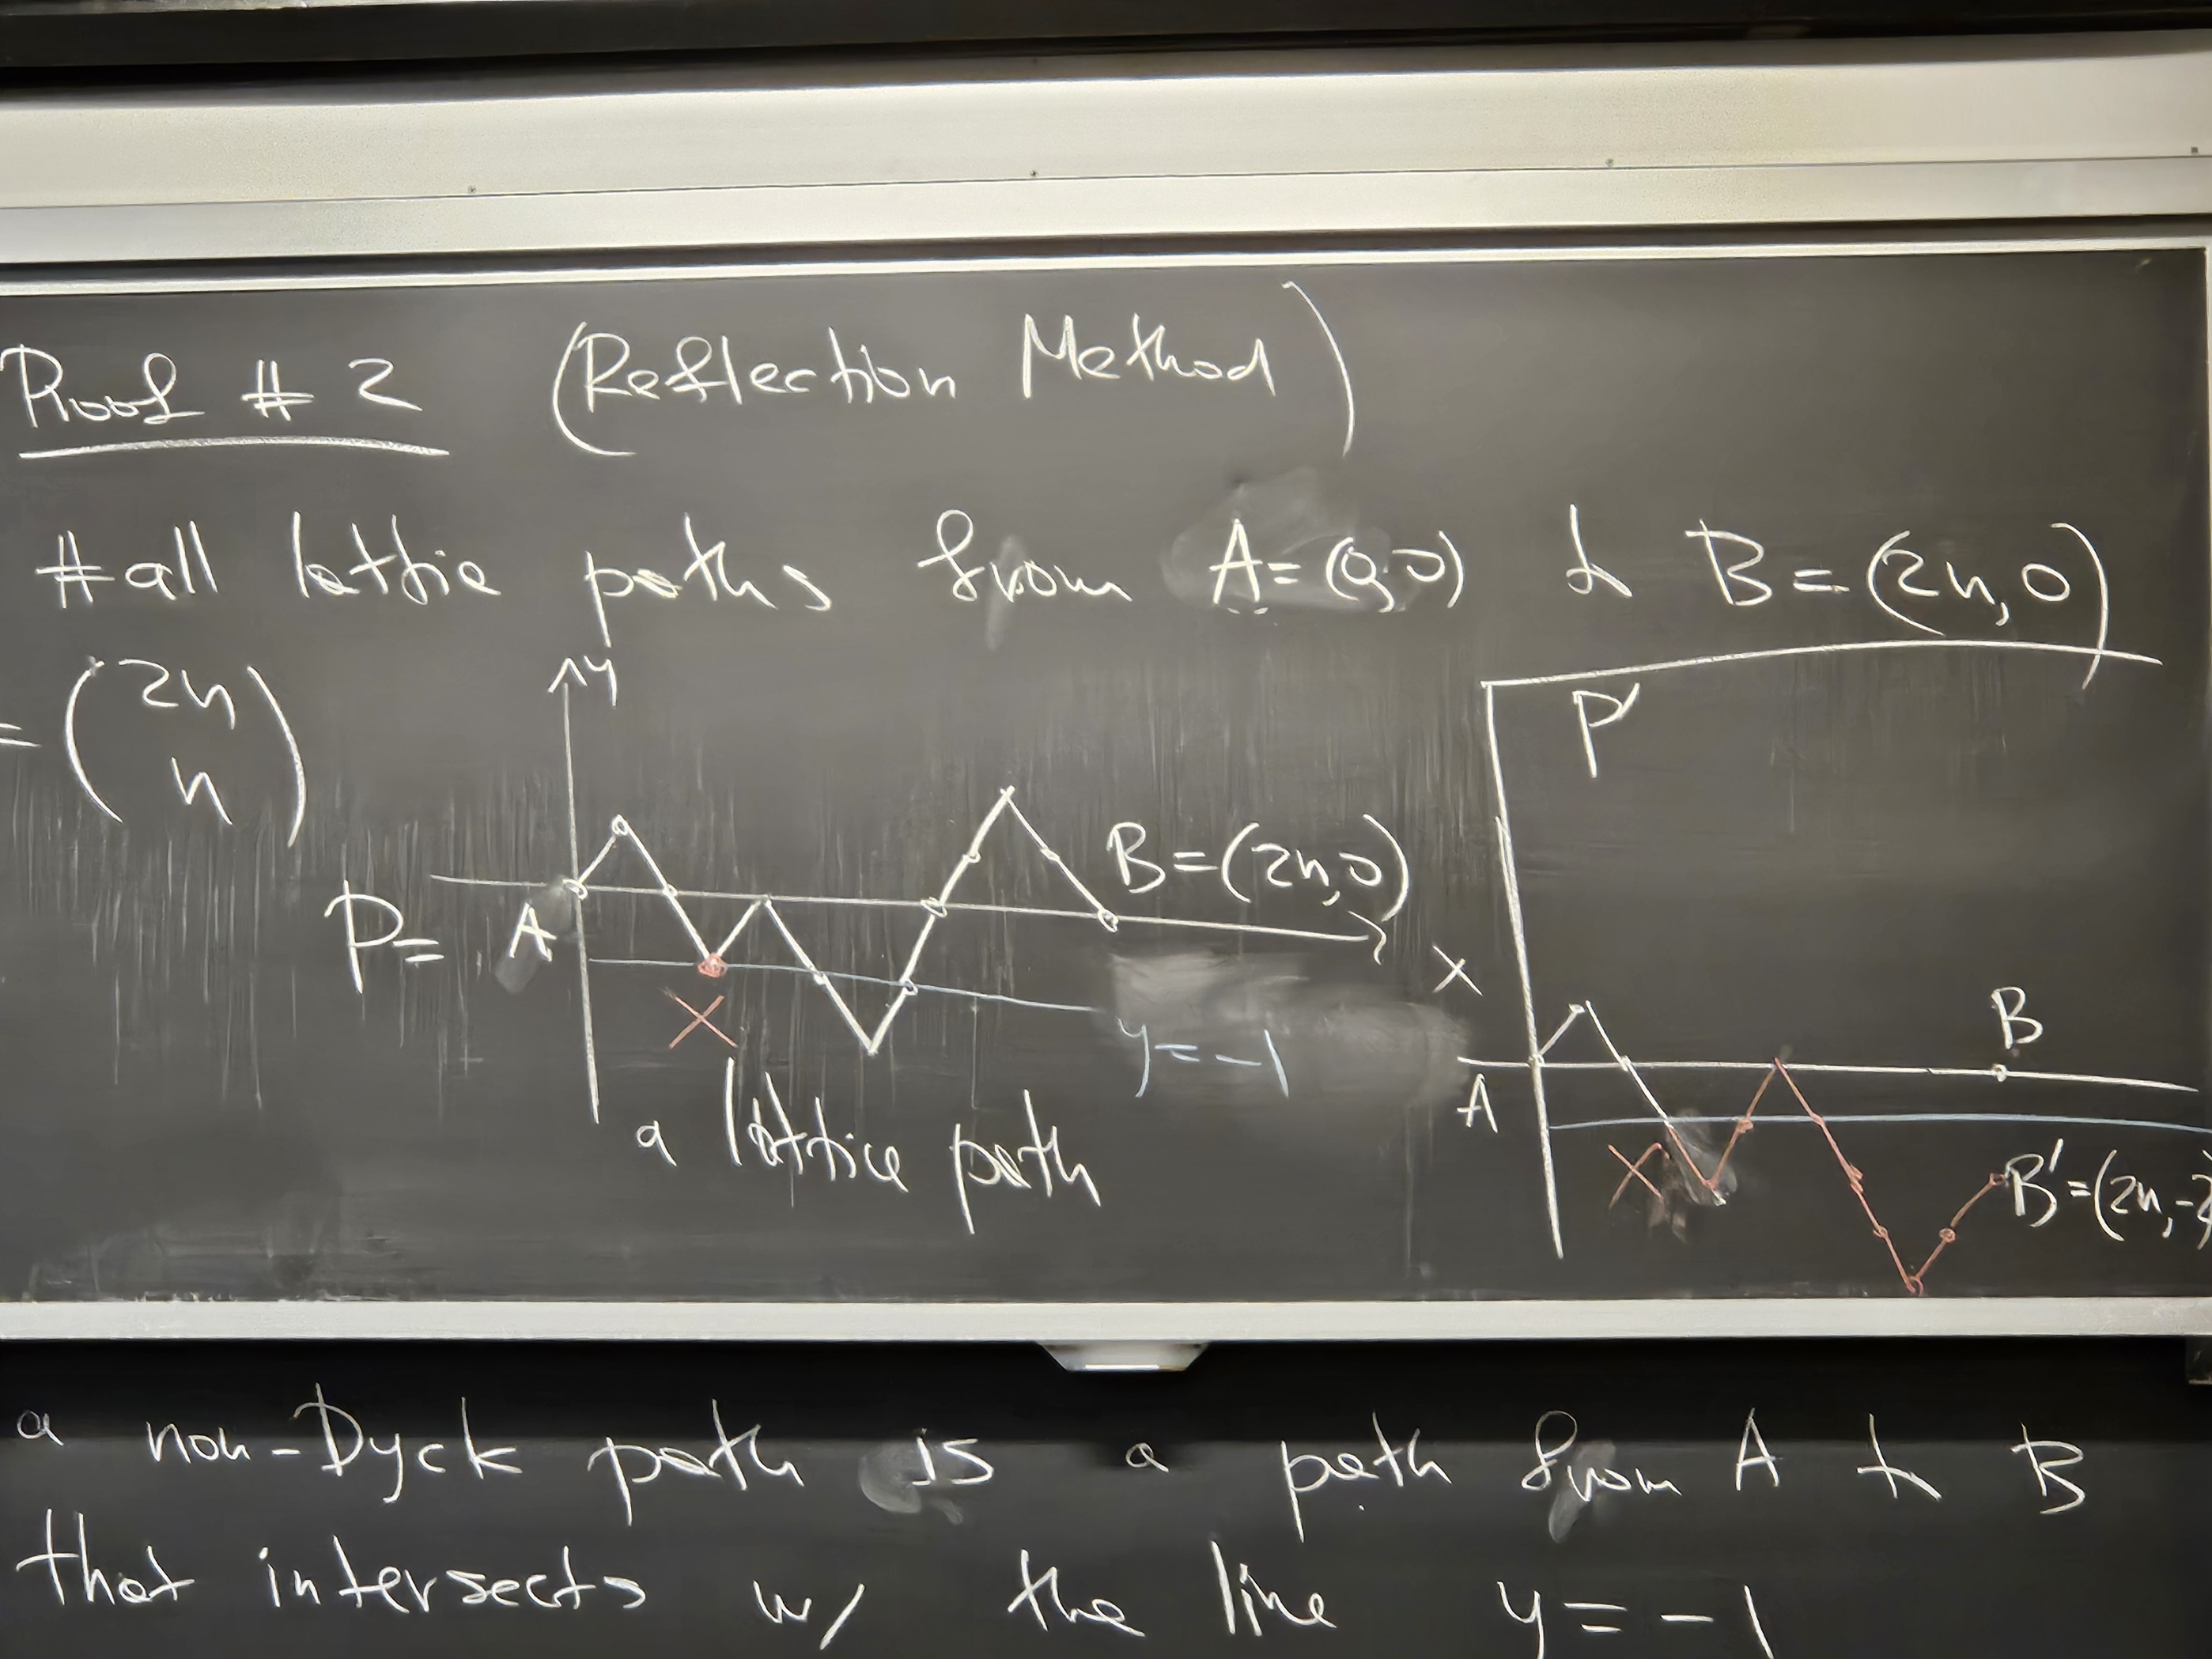 Proof # 2 (Reflection Method)
# all lattice paths from A = (0,0) to B = (2n, 0)
= (2n
n)
y
P =
A
B = (2n, 0)
x
X
y = -1
a lattice path
P'
A
B
X
B' = (2n, -2)
a non-Dyck path is a path from A to B
that intersects w/ the line y = -1